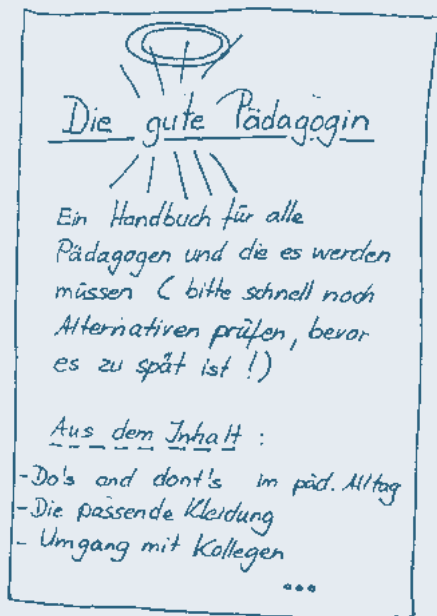 Die gute Pädagogin
Ein Handbuch für alle
Pädagogen und die es werden
müssen ( bitte schnell noch
Alternativen prüfen, bevor
es zu spät ist !)
Aus dem Inhalt :
- Do's and dont's im päd. Alltag
- Die passende Kleidung
- Umgang mit Kollegen
...